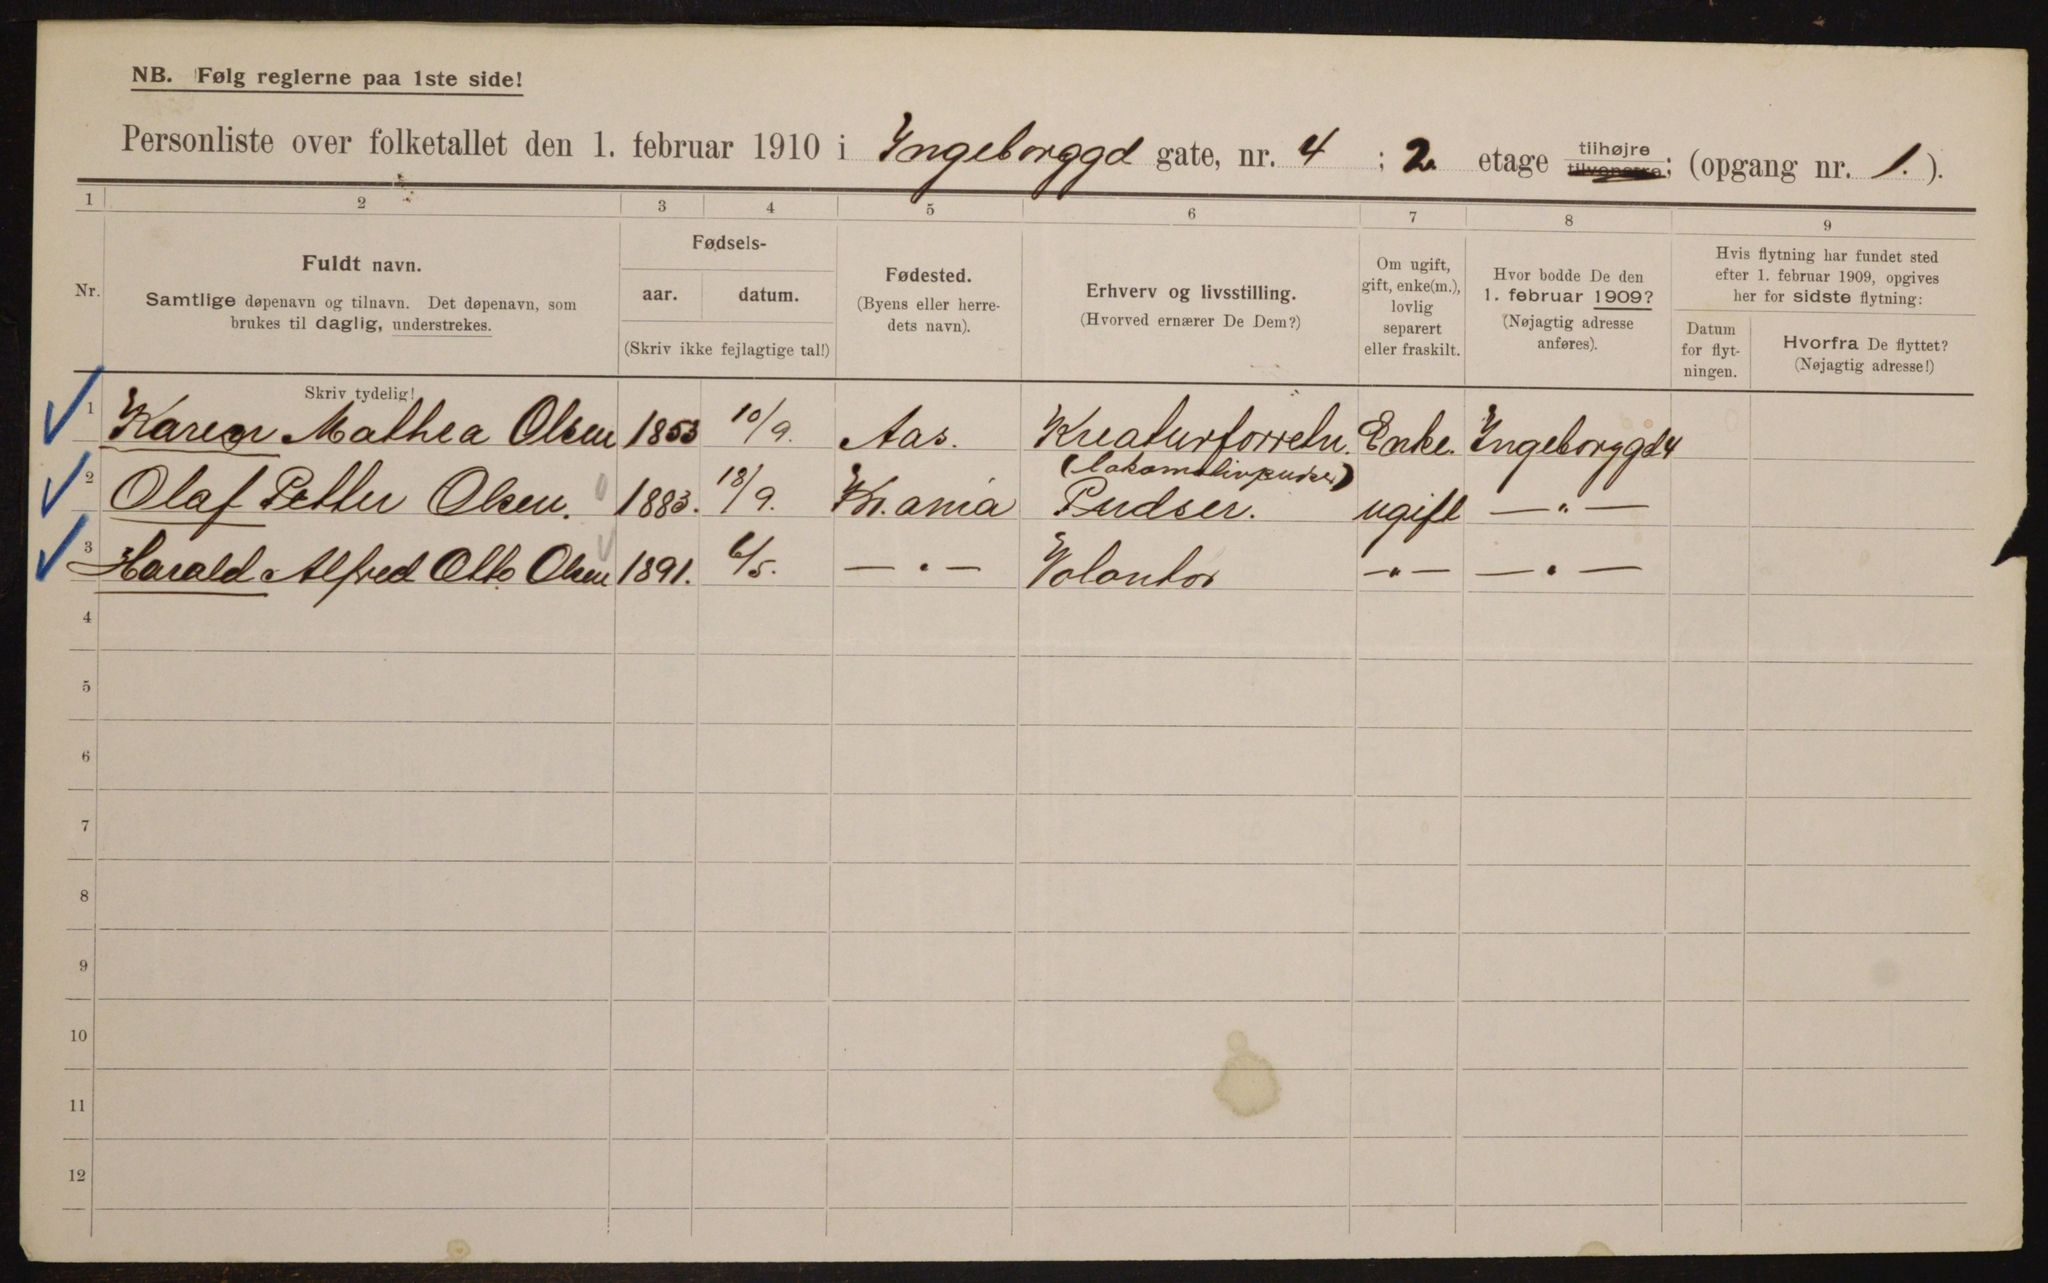 NB. Følg reglerne paa 1ste side!
Personliste over folketallet den 1. februar 1910 i Ingeborggd gate, nr. 4 ; 2. etage tilhøjre tilvenstre; (opgang nr. 1. ).
1 2 3 4 5 6 7 8 9
Nr.
Fuldt navn.
Samtlige døpenavn og tilnavn. Det døpenavn, som
brukes til daglig, understrekes.
Fødsels-
aar. datum.
(Skriv ikke fejlagtige tal!)
Fødested.
(Byens eller herre-
dets navn).
Erhverv og livsstilling.
(Hvorved ernærer De Dem?)
Om ugift,
gift, enke(m.),
lovlig
separert
eller fraskilt.
Hvor bodde De den
1. februar 1909?
(Nøjagtig adresse
anføres).
Hvis flytning har fundet sted
efter 1. februar 1909, opgives
her for sidste flytning:
Datum
for flyt-
ningen.
Hvorfra De flyttet?
(Nøjagtig adresse!)
Skriv tydelig!
1 Karen Mathea Olsen 1853 10/9. Aas. Kreaturforretn. Enke. Ingeborggd 4
(lokomotivpudser)
2 Olaf Petter Olsen. 1883. 18/9. Kr.ania Pudser. ugift — " —
3 Harald Alfred Otto Olsen 1891. 6/5. — " — Volontør — " — — " —
4
5
6
7
8
9
10
11
12